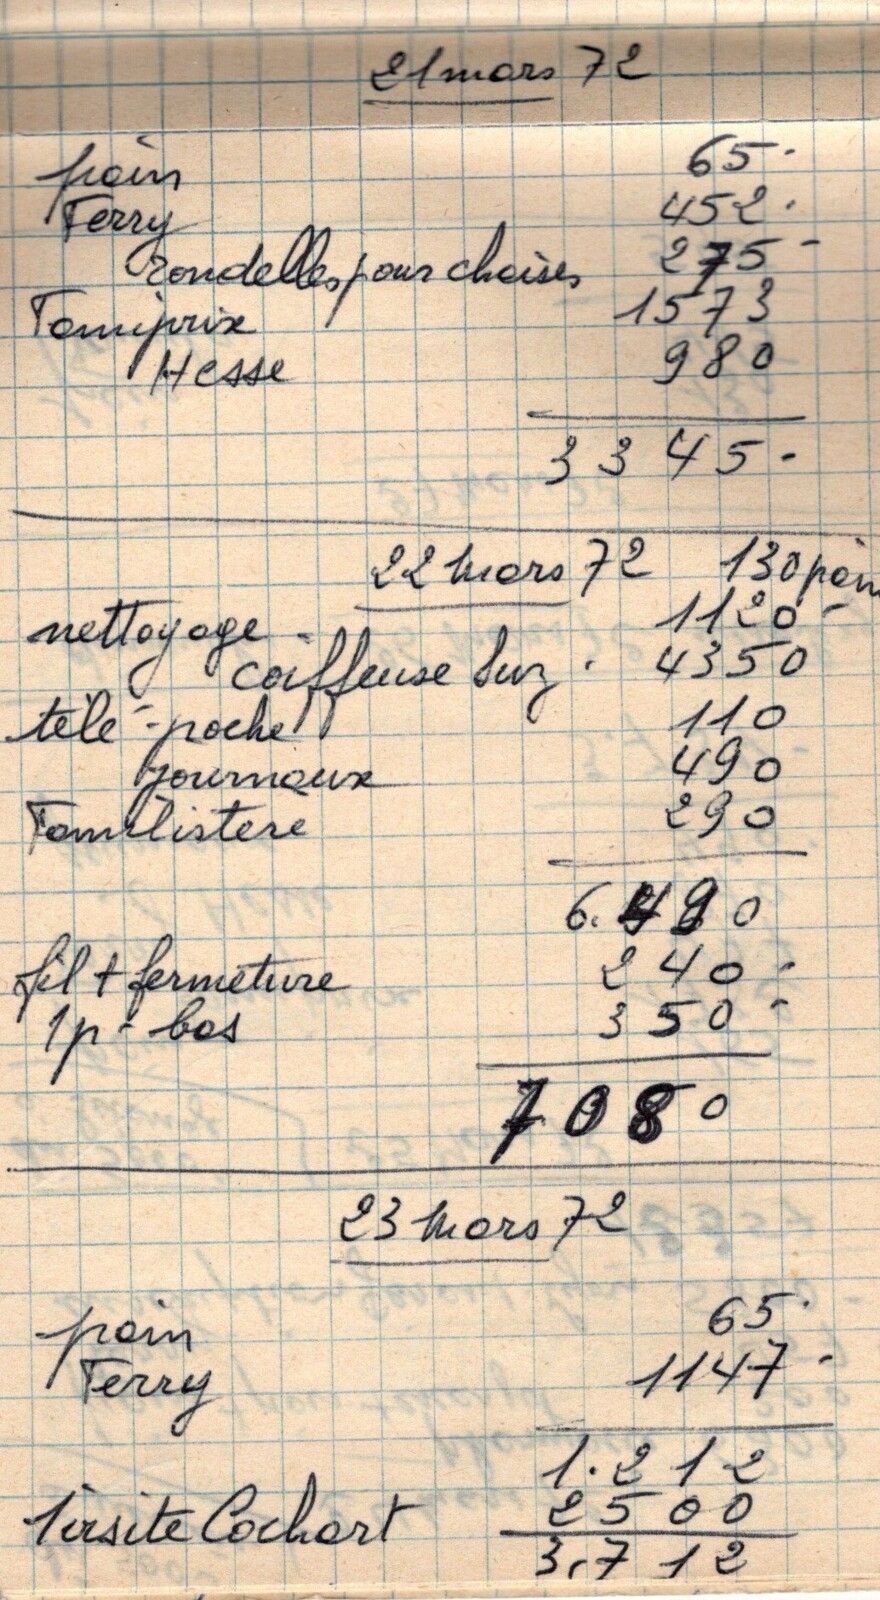 21 mars 72
pain 65.
Ferry 452.
rondelles pour chaises 275-
Famiprix 1573
Hesse 980
3345-
22 mars 72 130 pain
nettoyage - 1120-
coiffeuse Suz. 4350
télé-poche 110
journaux 490
Familistère 290
6.490
fil + fermeture 240-
1p- bas 350-
7080
23 mars 72
pain 65.
Ferry 1147-
1.212
Visite Cochart 2500
3.712